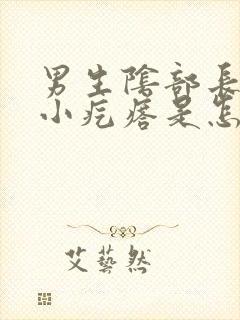 男生陰部長
小疙瘩是怎
艾藝然